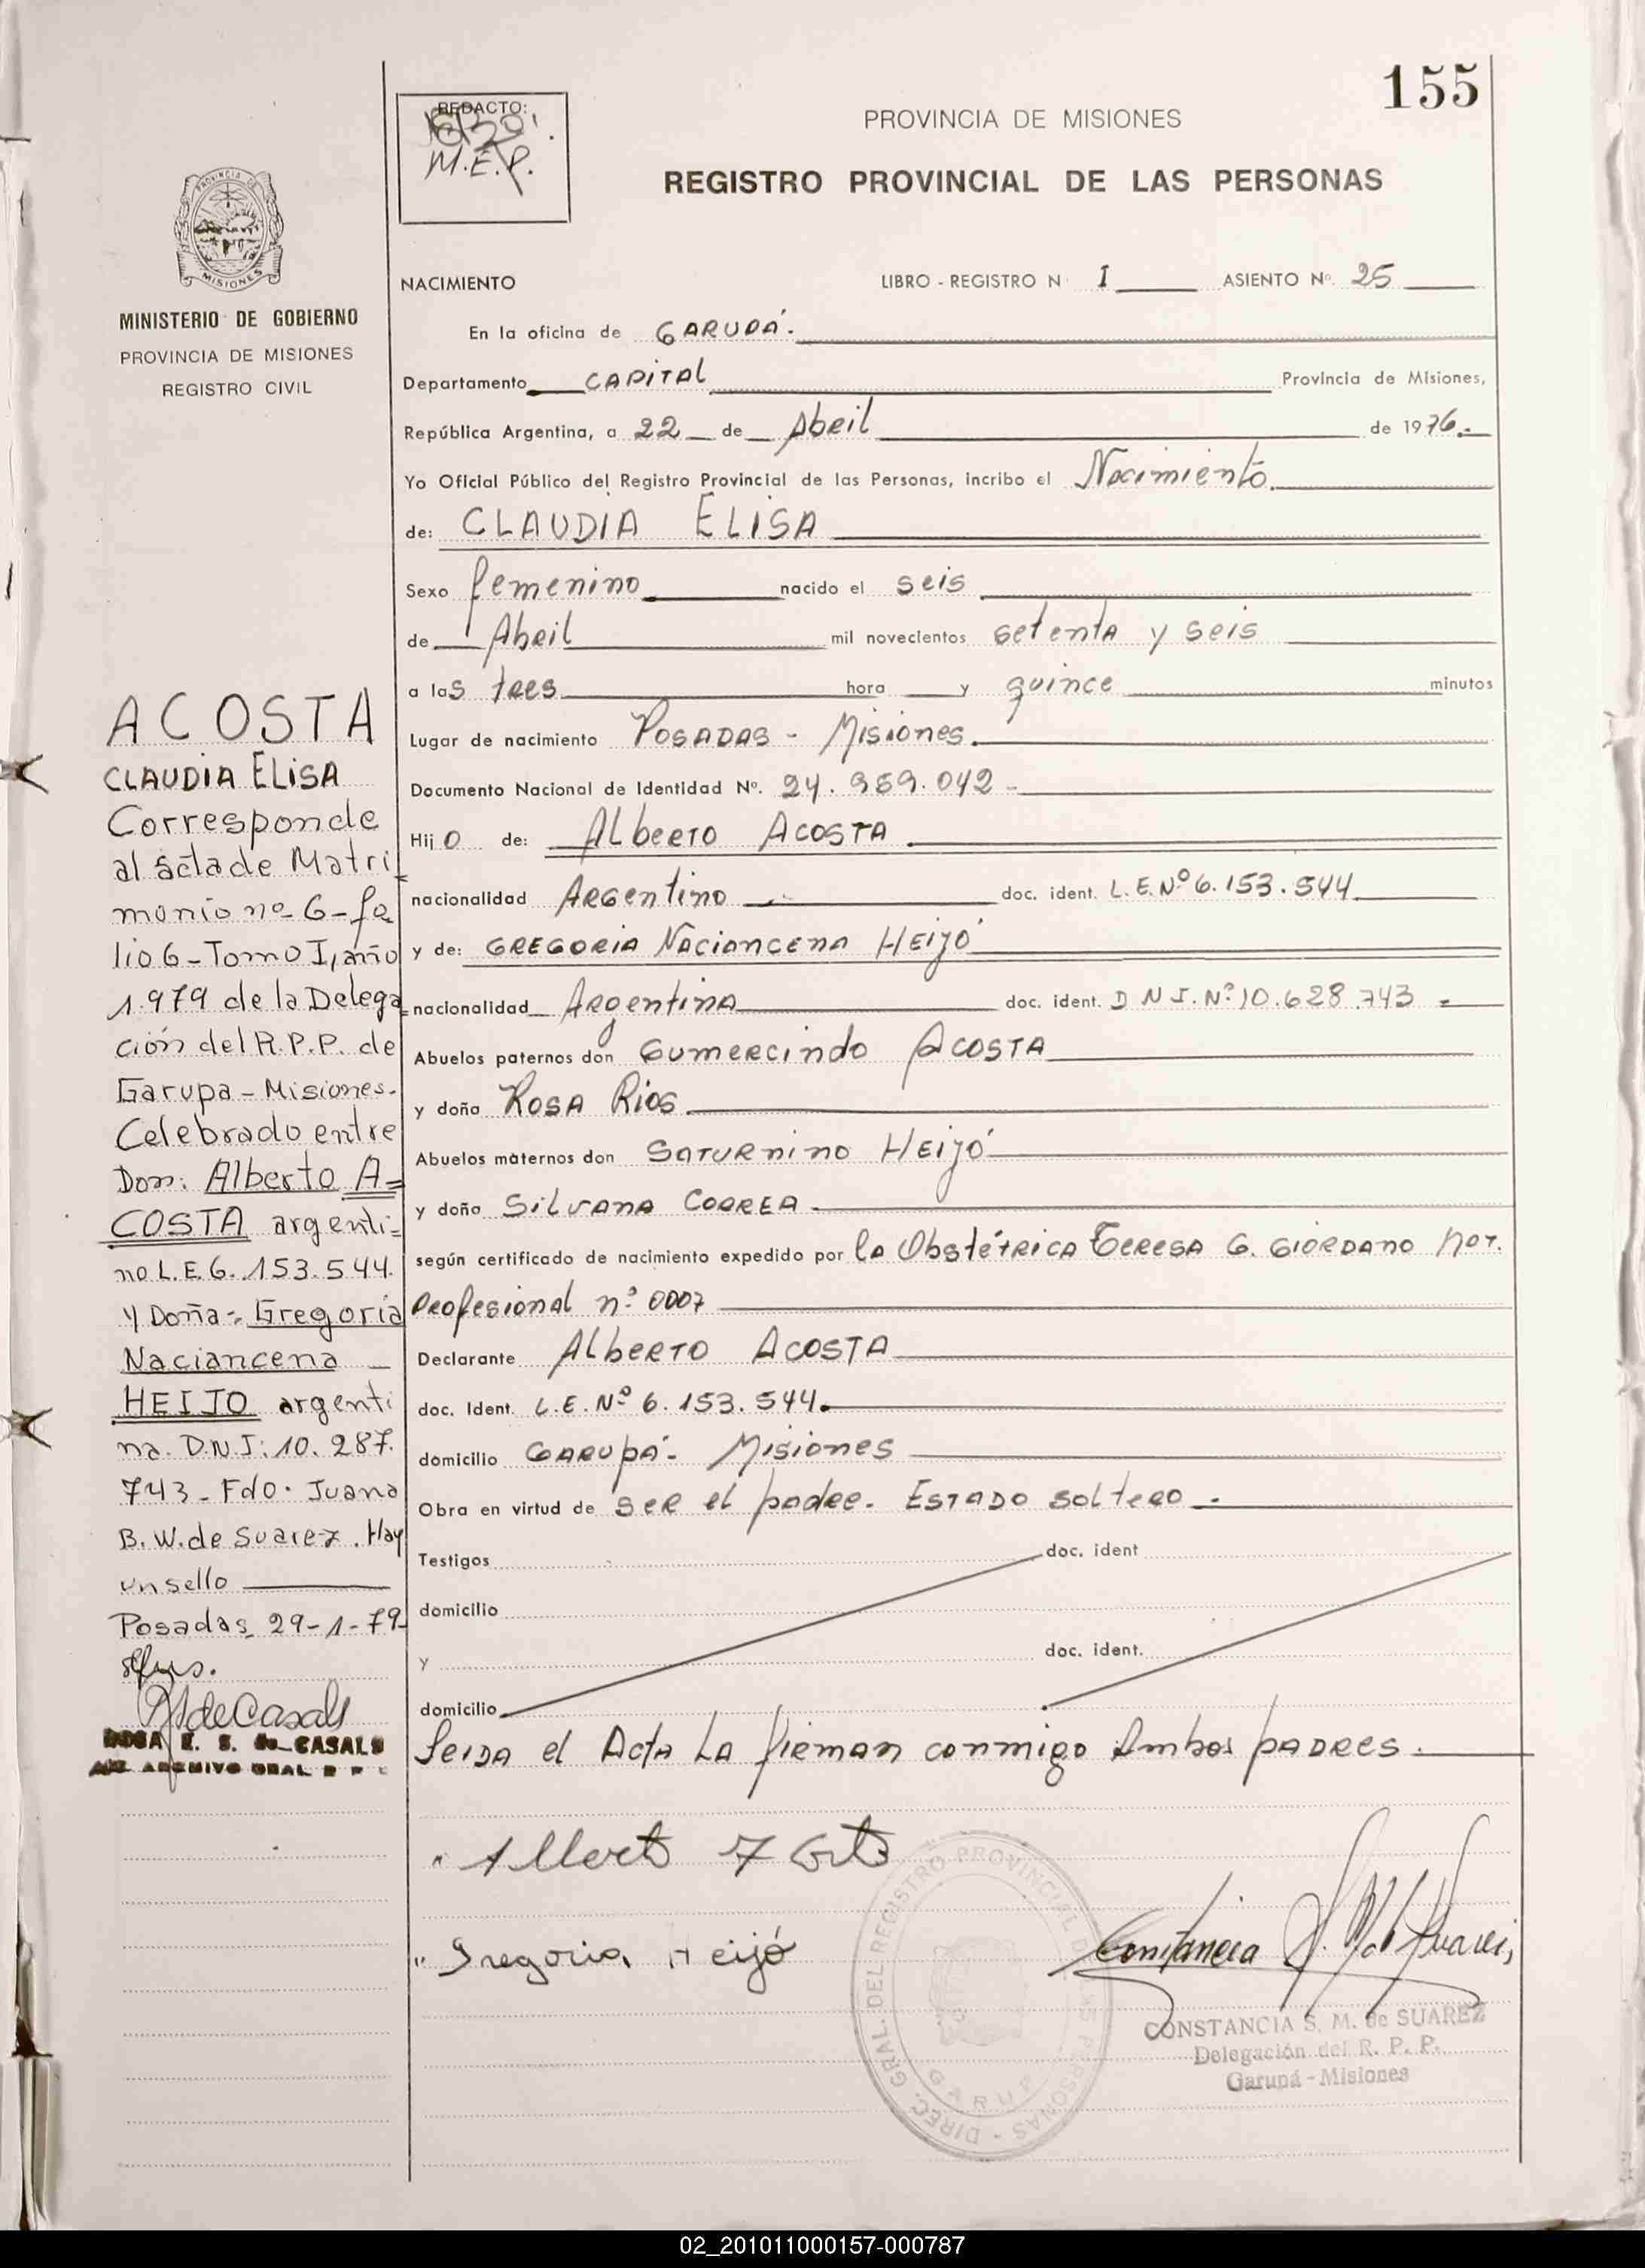 155
REDACTO:
M.E.P.
PROVINCIA DE MISIONES
REGISTRO PROVINCIAL DE LAS PERSONAS
PROVINCIA DE
MISIONES
MINISTERIO DE GOBIERNO
PROVINCIA DE MISIONES
REGISTRO CIVIL
NACIMIENTO LIBRO - REGISTRO N° I ASIENTO N°. 25
En la oficina de GARUPÁ.
Departamento CAPITAL Provincia de Misiones,
República Argentina, a 22 de Abril de 1976.-
Yo Oficial Público del Registro Provincial de las Personas, incribo el Nacimiento
de: CLAUDIA ELISA
Sexo femenino nacido el seis
de Abril mil novecientos setenta y seis
a las tres hora y quince minutos
Lugar de nacimiento POSADAS - Misiones.
Documento Nacional de Identidad N°. 24.959.042 -
Hijo de: Alberto ACOSTA
nacionalidad Argentino doc. ident. L.E.Nº 6.153.544
y de: GREGORIA Naciancena HEIJÓ
nacionalidad Argentina doc. ident. D N I. Nº 10.628.743 -
Abuelos paternos don Gumercindo ACOSTA
y doña ROSA Rios
Abuelos maternos don Saturnino HEIJÓ
y doña Silvana CORREA
según certificado de nacimiento expedido por la Obstétrica Teresa G. GIORDANO
Profesional nº 0007
Declarante Alberto ACOSTA
doc. Ident. L.E. Nº 6.153.544.
domicilio GARUPÁ - Misiones
Obra en virtud de ser el padre. Estado soltero.
Testigos doc. ident
domicilio
y doc. ident.
domicilio
Leida el Acta La firman conmigo Ambos padres.
Gregoria Heijó
DIREC. GRAL. DEL REGISTRO PROVINCIAL DE LAS PERSONAS
CONSTANCIA S. M. de SUAREZ
Delegación del R. P. P.
Garupá - Misiones
ACOSTA
CLAUDIA ELISA
Corresponde
al acta de Matri
monio nº 6 - fo
lio 6 - Tomo I, año
1.979 de la Delega
ción del R.P.P. de
Garupa - Misiones.
Celebrado entre
Don: Alberto A=
COSTA argenti=
no L.E. 6.153.544.
y Doña: Gregoria
Naciancena
HEIJO argenti
na. D.N.I: 10.287.
743 - Fdo. Juana
B. W. de Suarez. Hay
un sello
Posadas, 29-1-79-
E. S. de CASALS
ARCHIVO GRAL R P
02_201011000157-000787